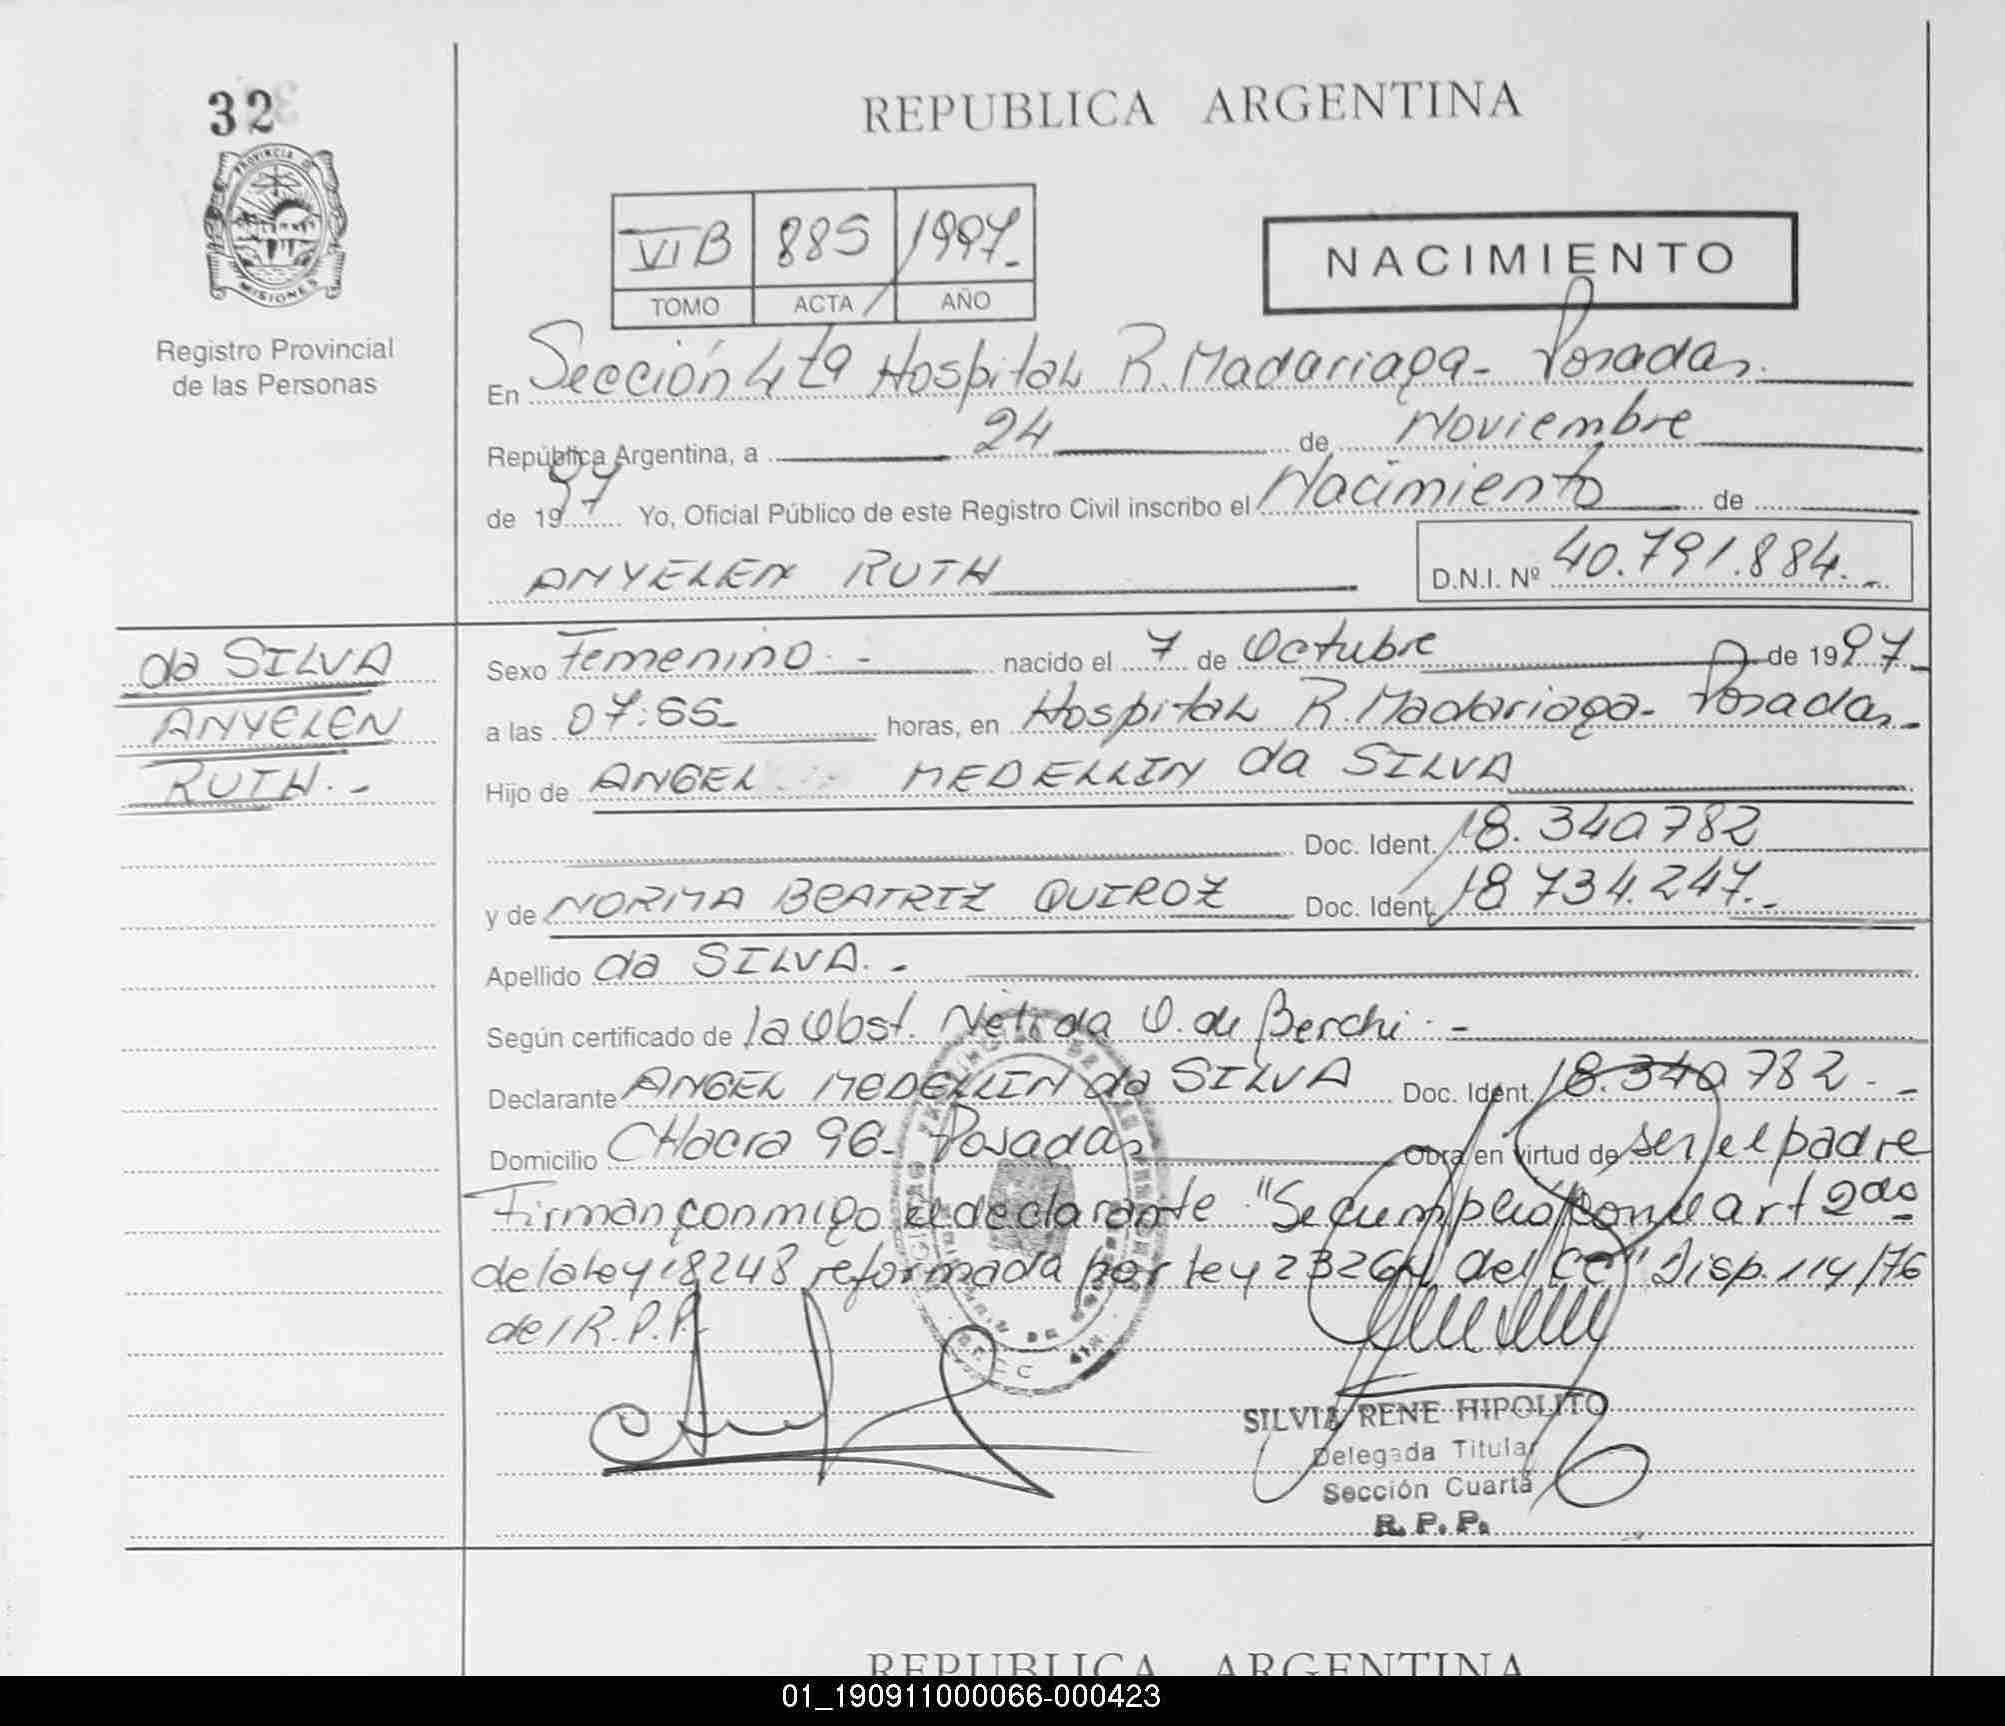 32
REPUBLICA ARGENTINA
PROVINCIA DE
MISIONES
Registro Provincial
de las Personas
VI B 885 1997.-
TOMO ACTA AÑO
NACIMIENTO
En Sección 4ta Hospital R. Madariaga - Posadas.
República Argentina, a 24 de Noviembre
de 1997 Yo, Oficial Público de este Registro Civil inscribo el Nacimiento de
ANYELEN RUTH D.N.I. Nº 40.791.884.-
da SILVA
ANYELEN
RUTH.-
Sexo Femenino.- nacido el 7 de Octubre de 1997.-
a las 07:55- horas, en Hospital R. Madariaga - Posadas.-
Hijo de ANGEL MEDELLIN da SILVA
Doc. Ident. 18.340782
y de NORMA BEATRIZ QUIROZ Doc. Ident. 18734.247.-
Apellido da SILVA.-
Según certificado de la Obst. Nelida O. de Berchi.-
Declarante ANGEL MEDELLIN da SILVA Doc. Ident. 18.340782.-
Domicilio CHacra 96- Posadas Obra en virtud de ser el padre
Firman conmigo el declarante "Se cumplio con el art 2do
de la Ley 18248 reformada por ley 23264 del CC" Disp. 114/76
del R.P.P.
SILVIA RENE HIPOLITO
Delegada Titular
Sección Cuarta
R. P. P.
REPUBLICA ARGENTINA
01_190911000066-000423